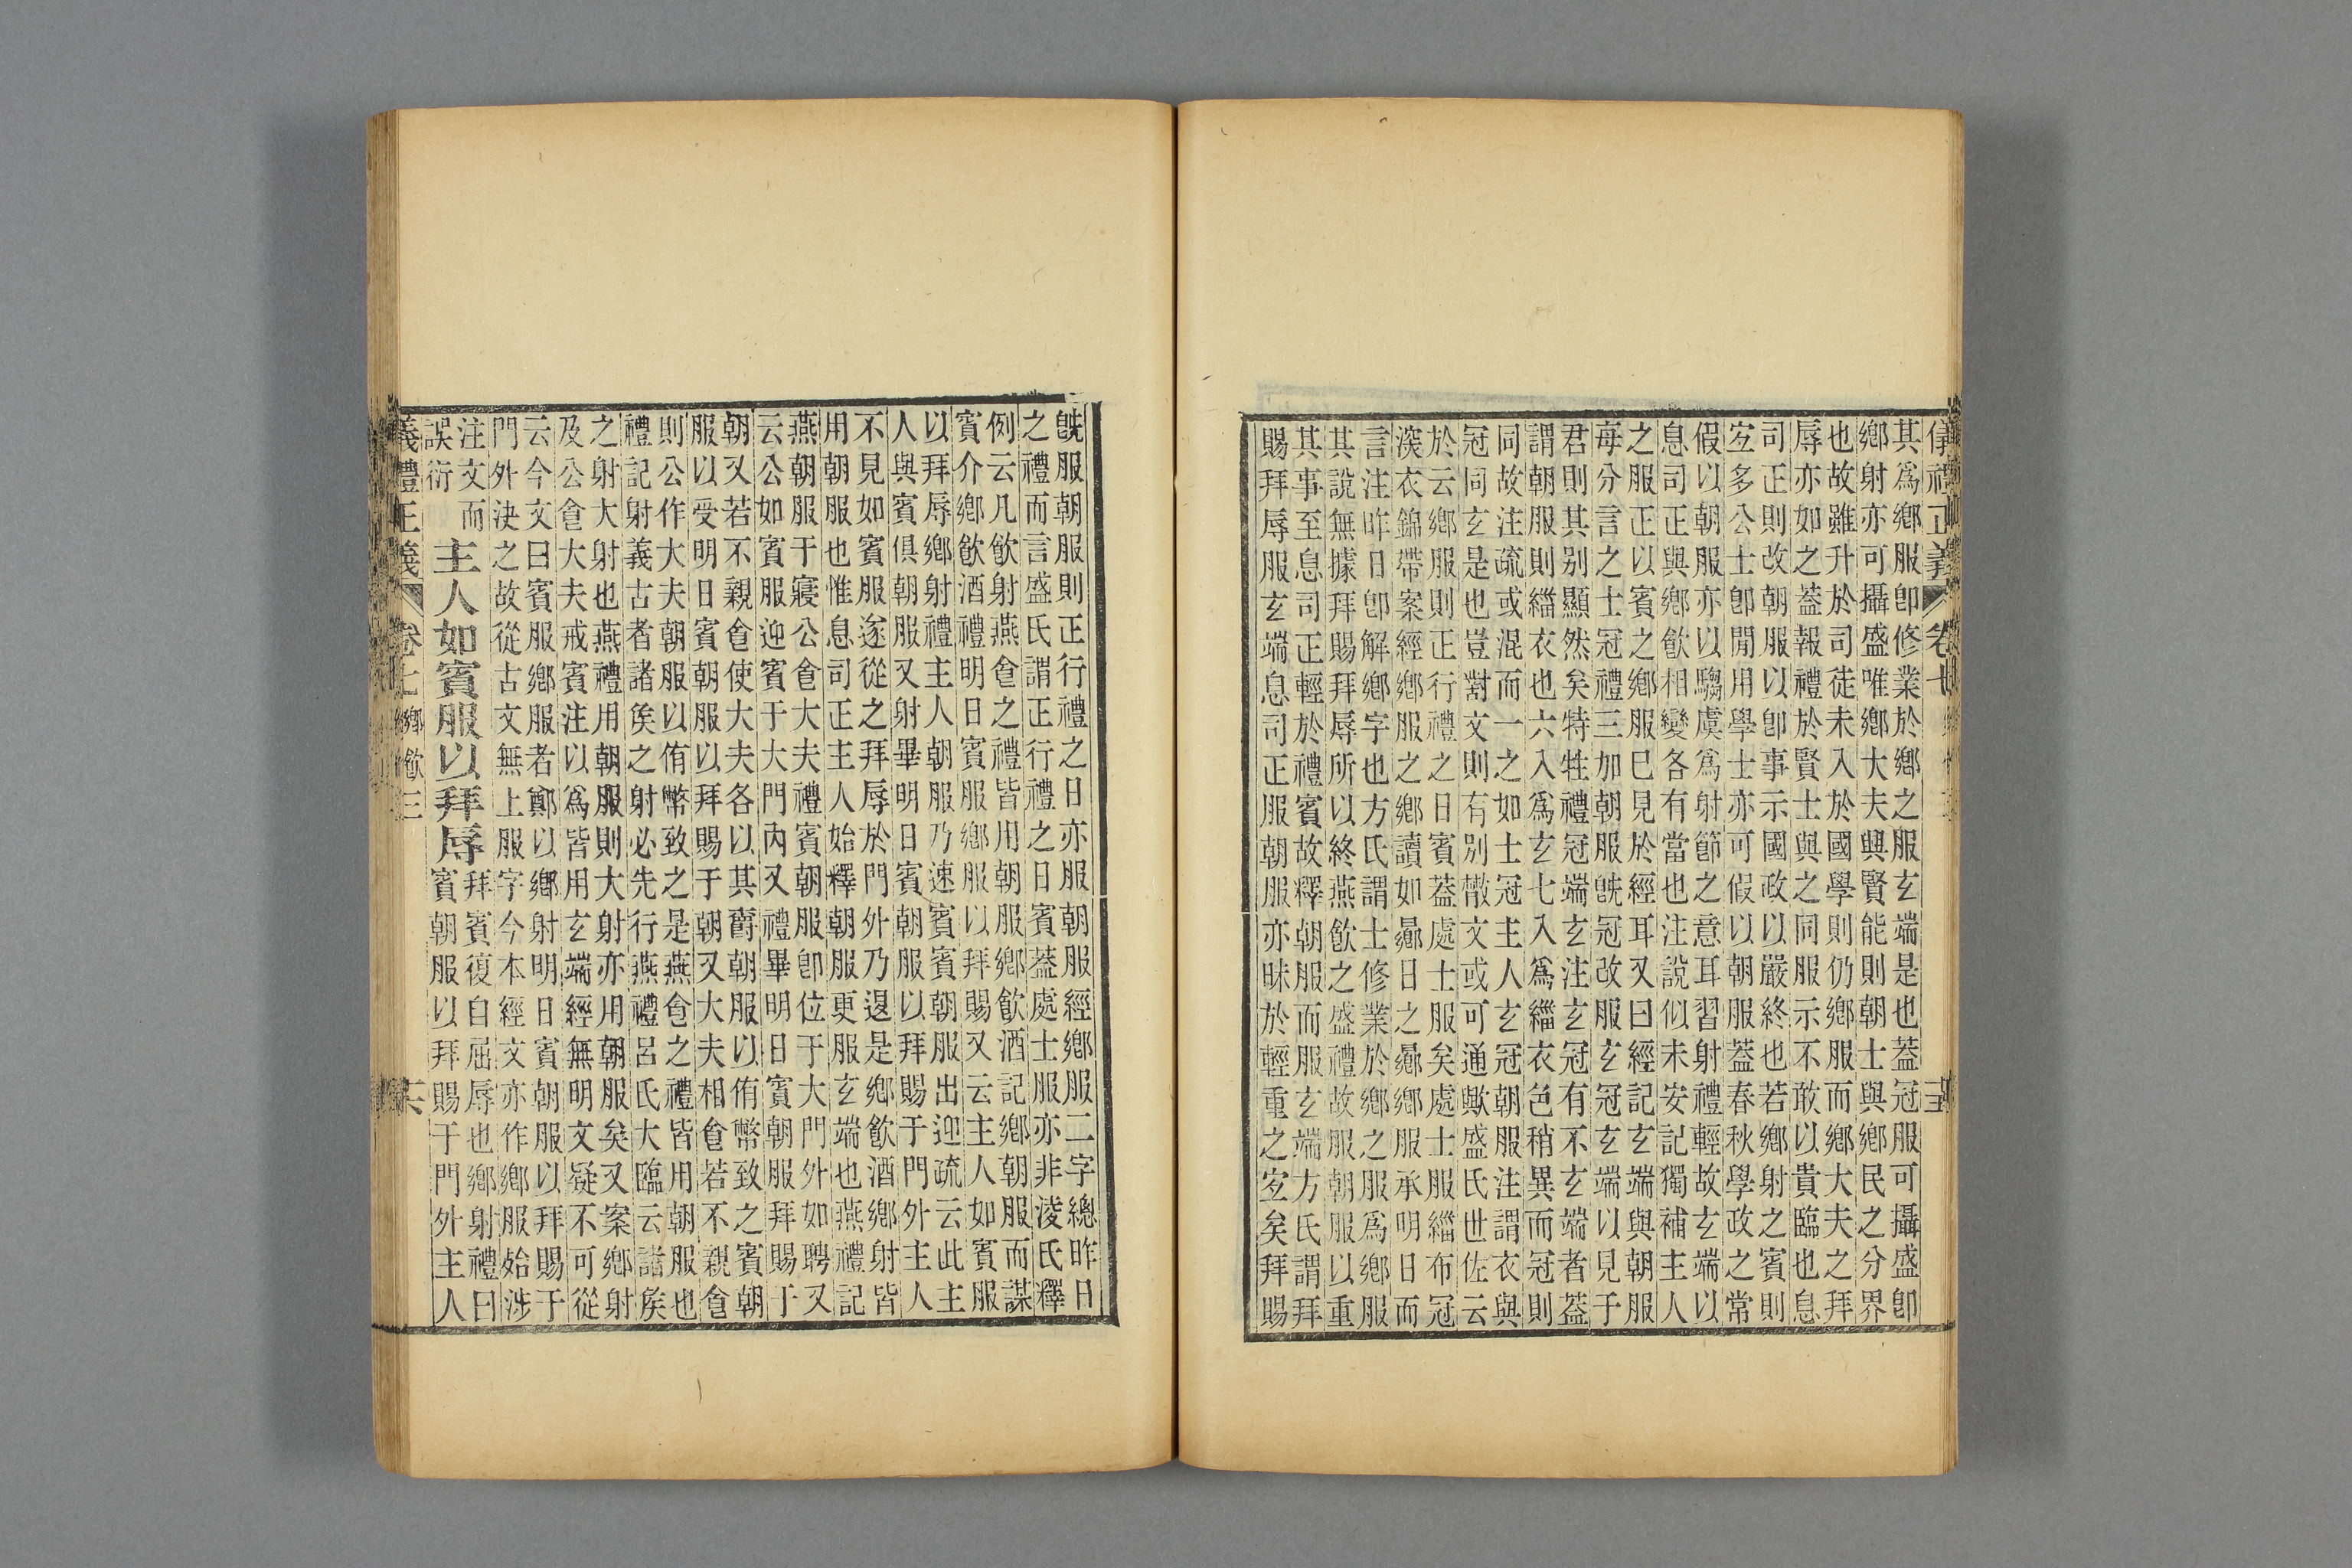 儀禮正義 卷七
其爲鄉服卽修業於鄉之服玄端是也蓋冠服可攝盛卽
鄉射亦可攝盛唯鄉大夫興賢能則朝士與鄉民之分界
也故雖升於司徒未入於國學則仍鄉服而鄉大夫之拜
辱亦如之蓋報禮於賢士與之同服示不敢以貴臨也息
司正則改朝服以卽事示國政以嚴終也若鄉射之賓則
宐多公士卽閒用學士亦可假以朝服蓋春秋學政之常
假以朝服亦以騶虞爲射節之意耳習射禮輕故玄端以
息司正與鄉飮相變各有當也注說似未安記獨補主人
之服正以賓之鄉服巳見於經耳又曰經記玄端與朝服
每分言之士冠禮三加朝服旣冠改服玄冠玄端以見于
君則其别顯然矣特牲禮冠端玄注玄冠有不玄端者蓋
謂朝服則緇衣也六入爲玄七入爲緇衣色稍異而冠則
同故注疏或混而一之如士冠主人玄冠朝服注謂衣與
冠同玄是也豈對文則有別㪚文或可通歟盛氏世佐云
於云鄉服則正行禮之日賓蓋處士服矣處士服緇布冠
深衣錦帶案經鄉服之鄉讀如曏日之曏鄉服承明日而
言注昨日卽解鄉字也方氏謂士修業於鄉之服爲鄉服
其說無據拜賜拜辱所以終燕飮之盛禮故服朝服以重
其事至息司正輕於禮賓故釋朝服而服玄端方氏謂拜
賜拜辱服玄端息司正服朝服亦昧於輕重之宐矣拜賜
旣服朝服則正行禮之日亦服朝服經鄉服二字總昨日
之禮而言盛氏謂正行禮之日賓蓋處士服亦非淩氏釋
例云凡飮射燕食之禮皆用朝服鄉飮酒記鄉朝服而謀
賓介鄉飮酒禮明日賓服鄉服以拜賜又云主人如賓服
以拜辱鄉射禮主人朝服乃速賓賓朝服出迎疏云此主
人與賓俱朝服又射畢明日賓朝服以拜賜于門外主人
不見如賓服遂從之拜辱於門外乃退是鄉飮酒鄉射皆
用朝服也惟息司正主人始釋朝服更服玄端也燕禮記
燕朝服于寢公食大夫禮賓朝服卽位于大門外如聘又
云公如賓服迎賓于大門內又禮畢明日賓朝服拜賜于
朝又若不親食使大夫各以其爵朝服以侑幣致之賓朝
服以受明日賓朝服以拜賜于朝又大夫相食若不親食
則公作大夫朝服以侑幣致之是燕食之禮皆用朝服也
禮記射義古者諸矦之射必先行燕禮呂氏大臨云諸矦
之射大射也燕禮用朝服則大射亦用朝服矣又案鄉射
及公食大夫戒賓注以爲皆用玄端經無明文疑不可從
云今文曰賓服鄉服者鄭以鄉射明日賓朝服以拜賜于
門外決之故從古文無上服字今本經文亦作鄉服始涉
注文而
誤衍
主人如賓服以拜辱
拜賓復自屈辱也鄉射禮曰
賓朝服以拜賜于門外主人
義禮正義 卷七 鄉飮三